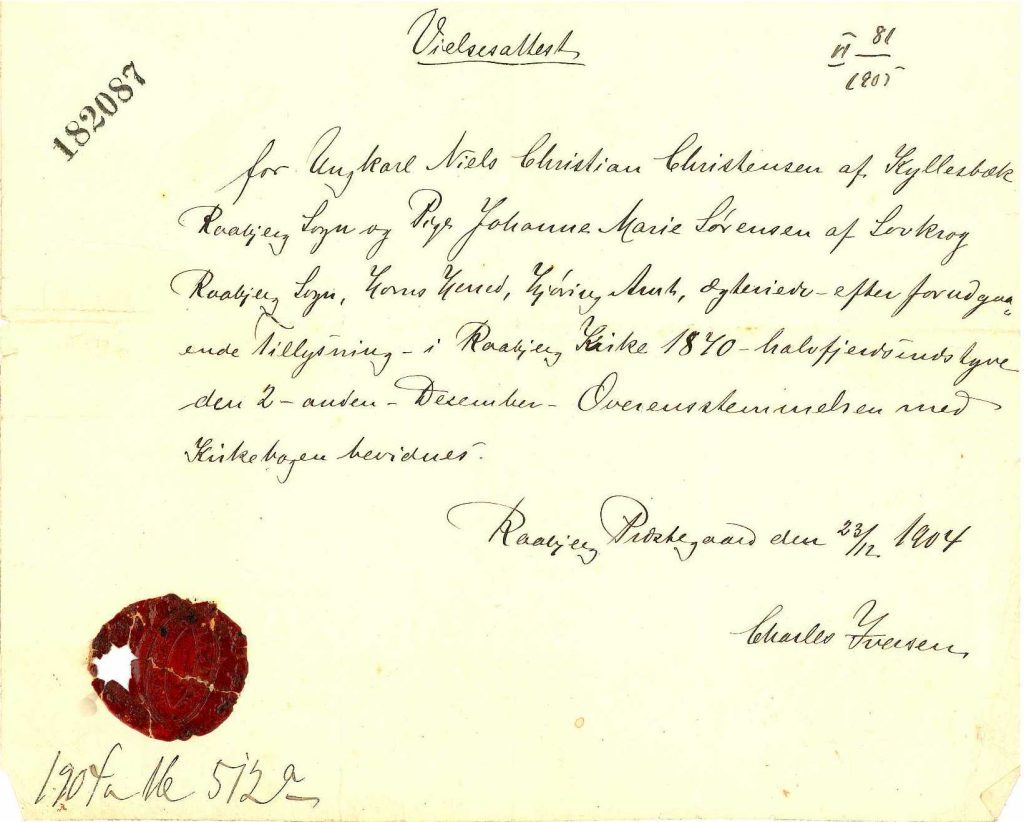 Vielsesattest
VI 81
1905
182087
for Ungkarl Niels Christian Christensen af Kyllesbæk
Raabjerg Sogn og Pige Johanne Marie Sørensen af Lovkrog
Raabjerg Sogn, Horns Herred, Hjøring Amt, ægteviede - efter forudgaa„
ende Tillysning - i Raabjerg Kirke 1870 - halvfjerdsindstyve
den 2 - anden - Desember - Overensstemmelsen med
Kirkebogen bevidnes.
Raabjerg Præstegaard den 23/12 1904
Charles Iversen
1904 512